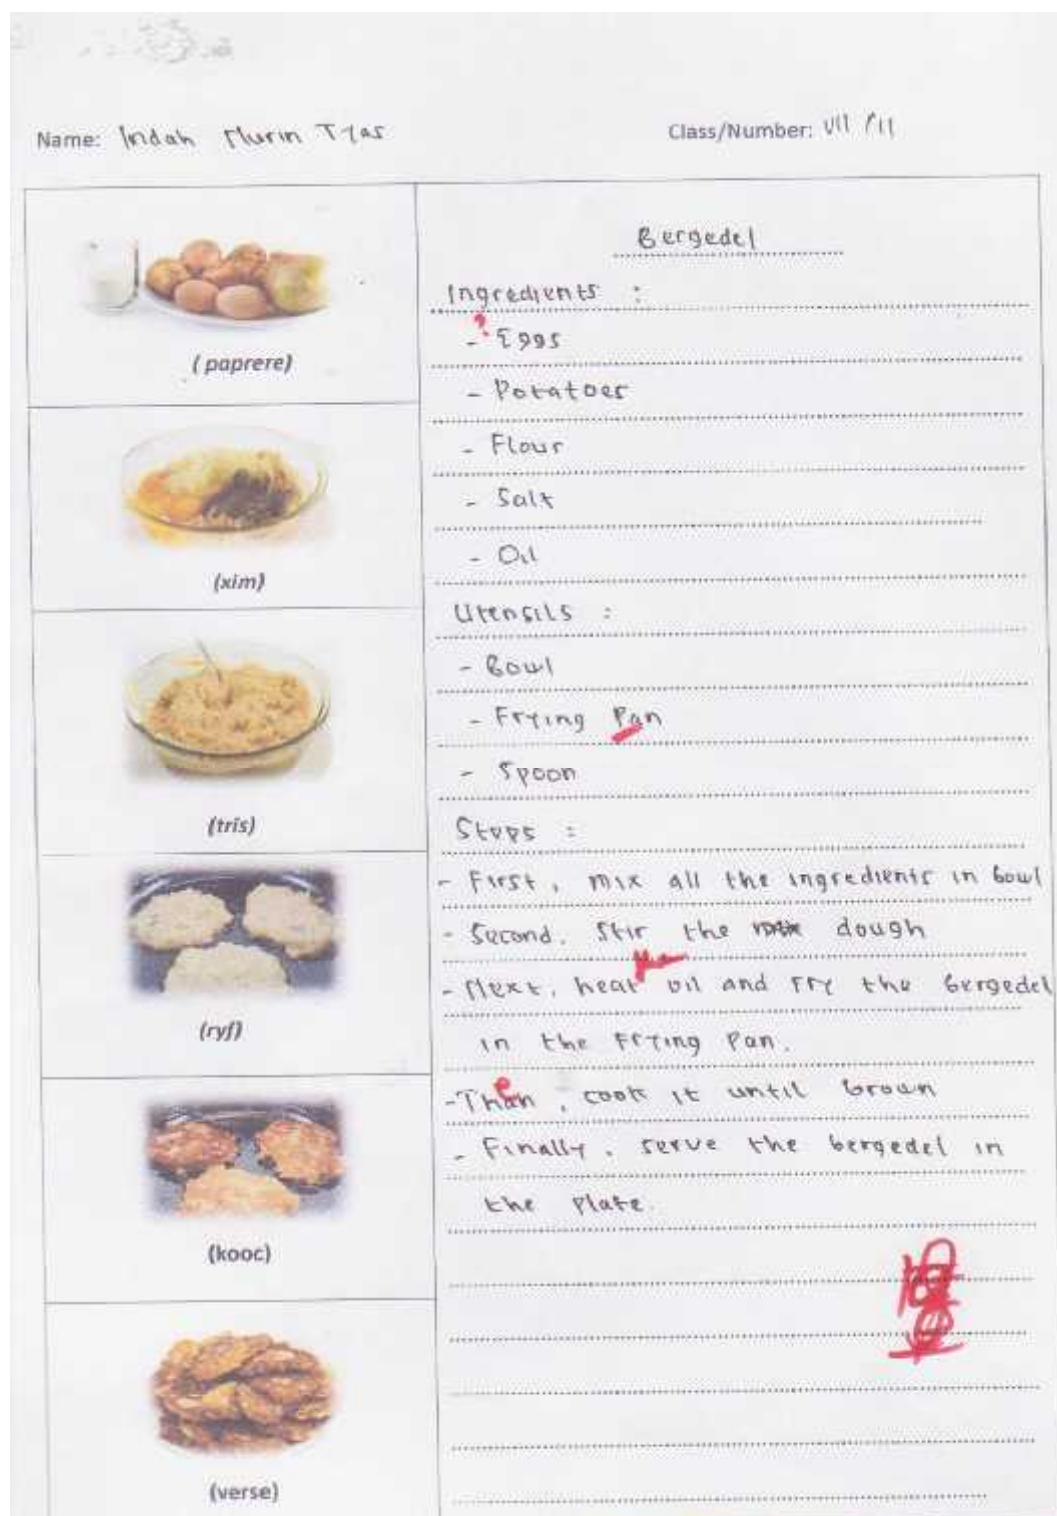 Name: Indah Nurin Tyas
Class/Number: VII / 11
( paprere)
(xim)
(tris)
(ryf)
(kooc)
(verse)
Bergedel
Ingredients :
- ? Eggs
- Potatoes
- Flour
- Salt
- Oil
Utensils :
- Bowl
- Frying Pan
- Spoon
Steps :
- First, mix all the ingredients in bowl
- Second, Stir the dough
- Next, heat the oil and Fry the bergedel
in the Frying Pan.
- Than e, cook it until brown
- Finally, serve the bergedel in
the Plate.